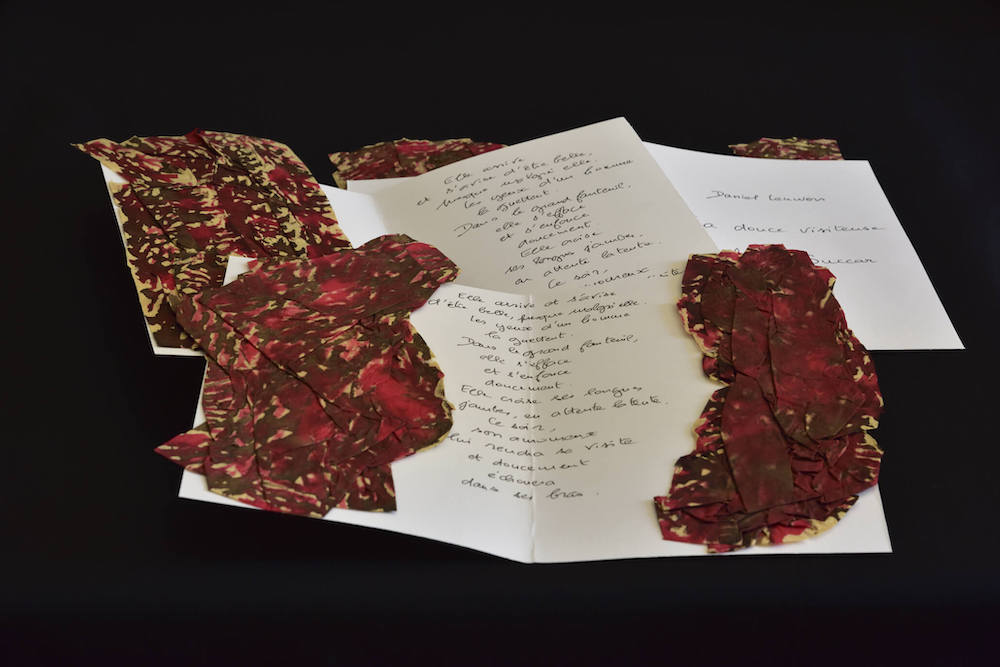 Elle arrive
s'avise d'être belle,
et presque malgré elle.
les yeux d'un homme
la guettent
Dans le grand fauteuil,
elle s'efface
et s'enfonce
doucement.
Elle croise
ses longues jambes,
en attente latente.
Ce soir,
Daniel Leuwers
a douce visiteuse
Elle arrive et s'avise
d'être belle, presque malgré elle.
les yeux d'un homme
la guettent.
Dans le grand fauteuil,
elle s'efface
et s'enfonce
doucement.
Elle croise ses longues
jambes, en attente latente.
Ce soir,
son amoureux
lui rendra sa visite
et doucement
échouera
dans ses bras.